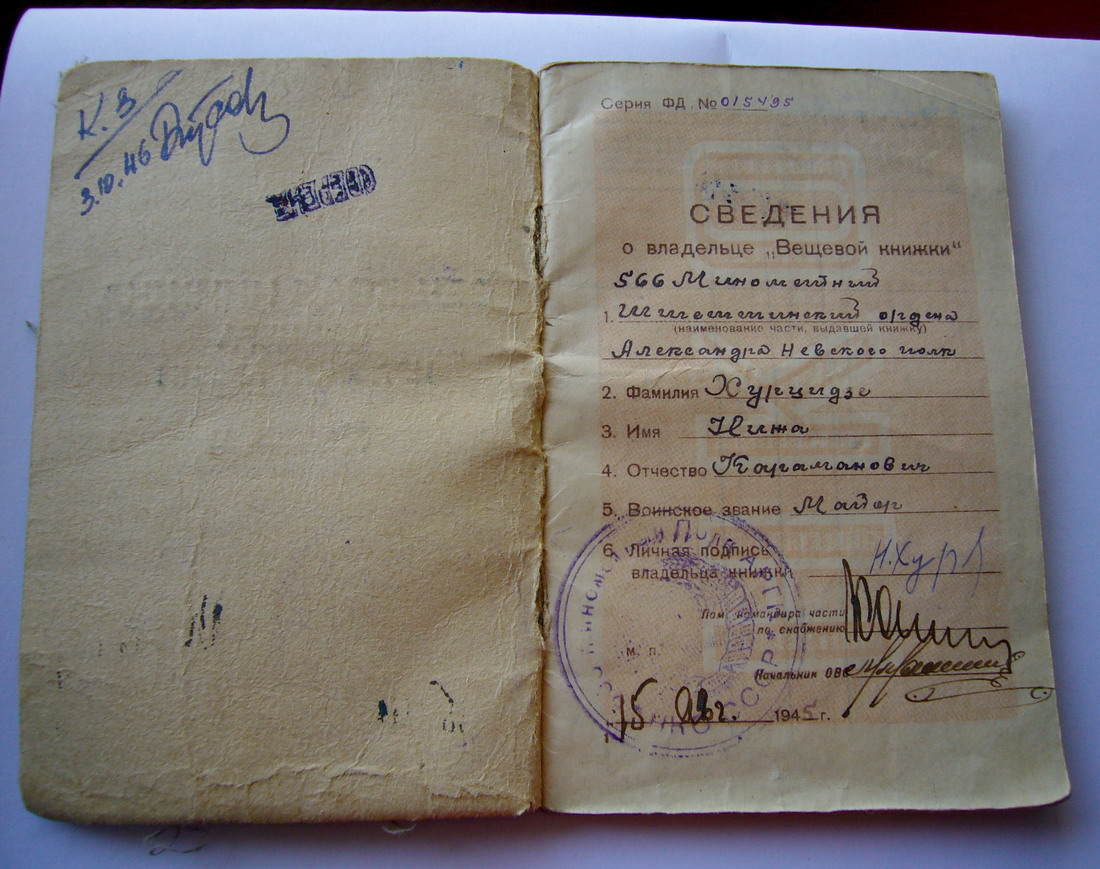 К. З
3.10.46
Серия ФД. № 015495
СВЕДЕНИЯ
о владельце „Вещевой книжки“
566 Минометный
1. Штеттинский ордена
(наименование части, выдавшей книжку)
Александра Невского полк
2. Фамилия Хурцидзе
3. Имя
4. Отчество Караманович
5. Воинское звание Майор
6. Личная подпись Н.Хур
владельца книжки
Пом. командира части
по снабжению
м. п.
Начальник ОВС
15 Авг. 1945 г.